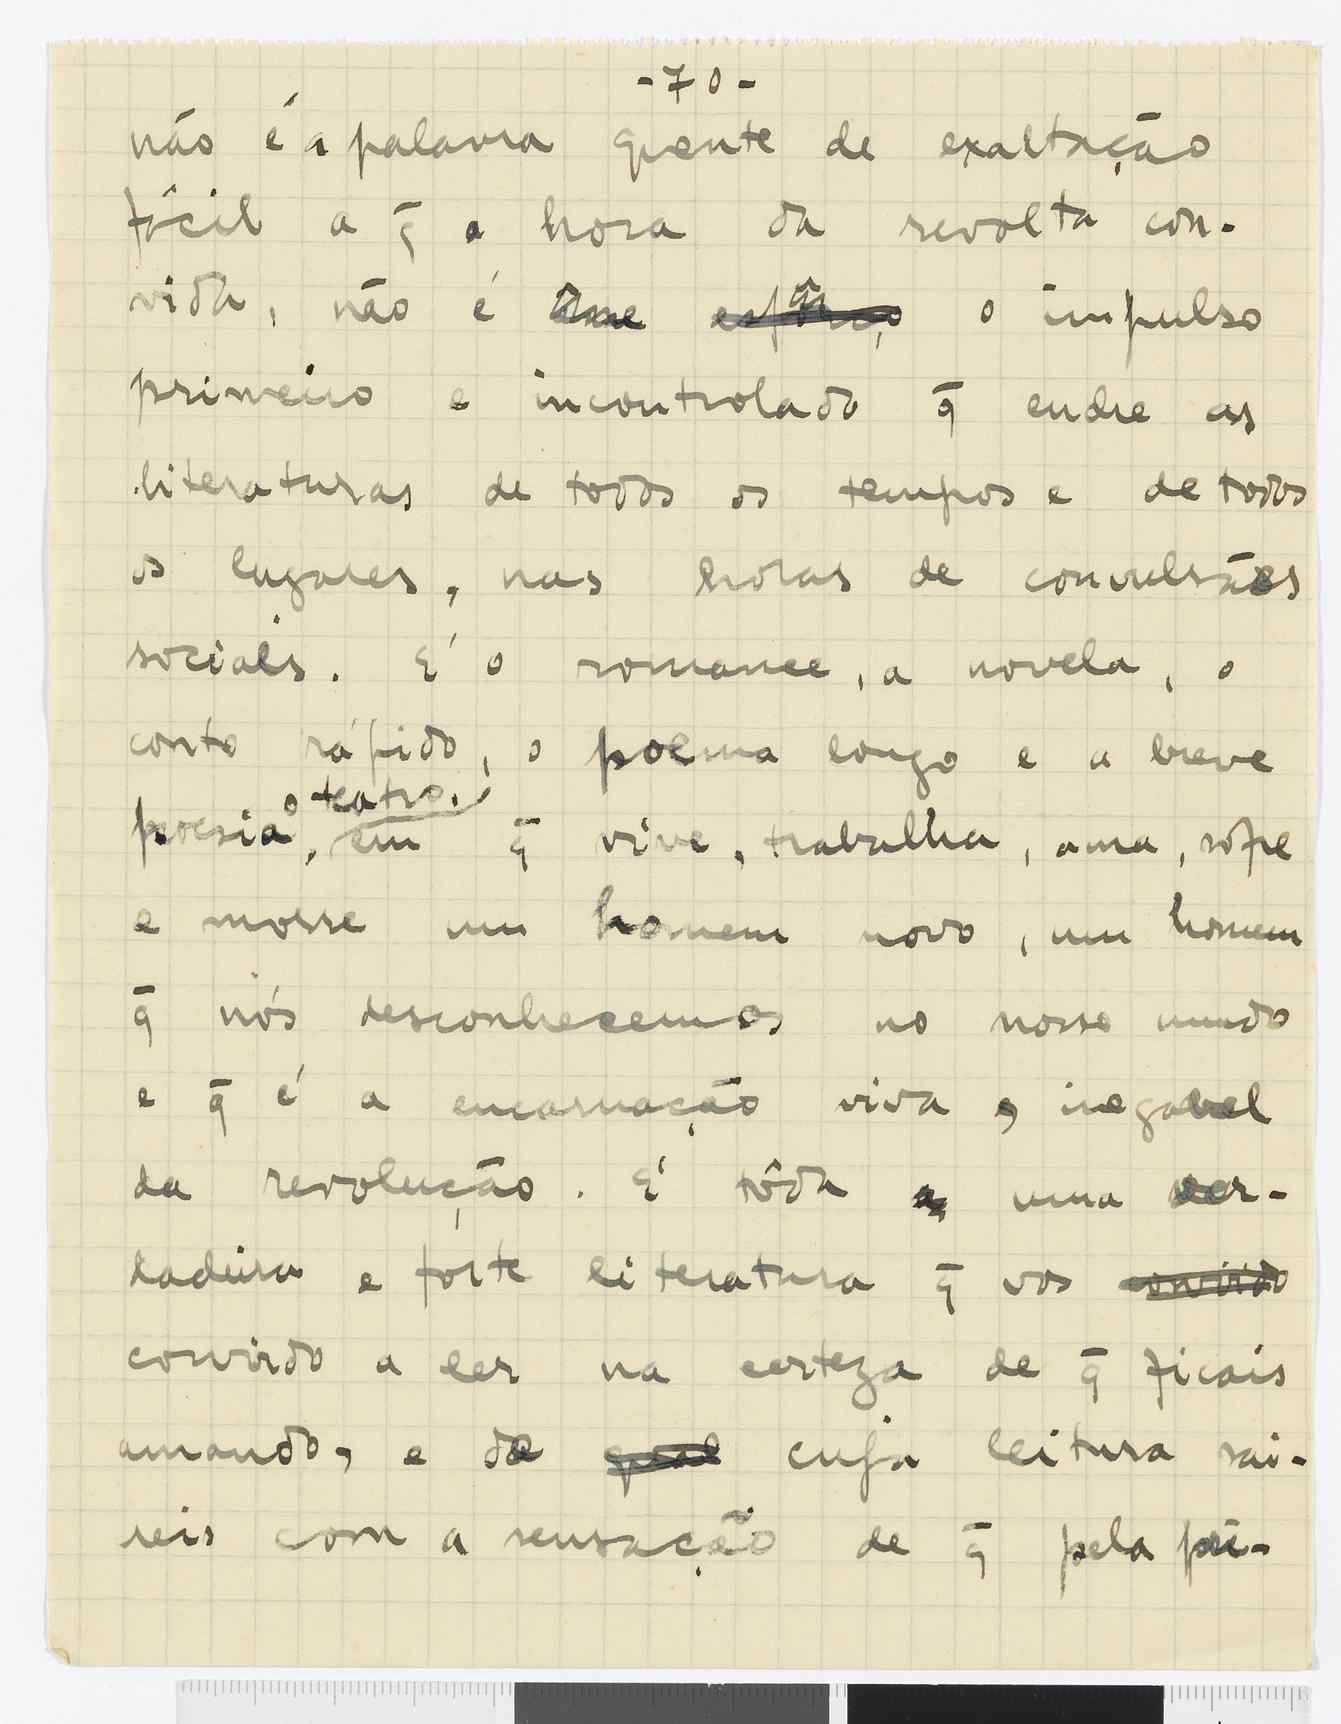 -70-
não é a palavra quente de exaltação
fácil a q̄ a hora da revolta con-
vida, não é o impulso
primeiro e incontrolado q̄ enche as
literaturas de todos os tempos e de todos
os lugares, nas horas de convulsões
sociais. E' o romance, a novela, o
conto rápido, o poema longo e a breve
o teatro,
poesia, em q̄ vive, trabalha, ama, sofre
e morre um homem novo, um homem
q̄ nós desconhecemos no nosso mundo
e q̄ é a encarnação viva, inegavel
da revolução. E' tôda uma ver-
dadeira e forte literatura q̄ vos convido
convido a ler na certeza de q̄ ficais
amando, e de qual cuja leitura sai-
reis com a sensação de q̄ pela pri-